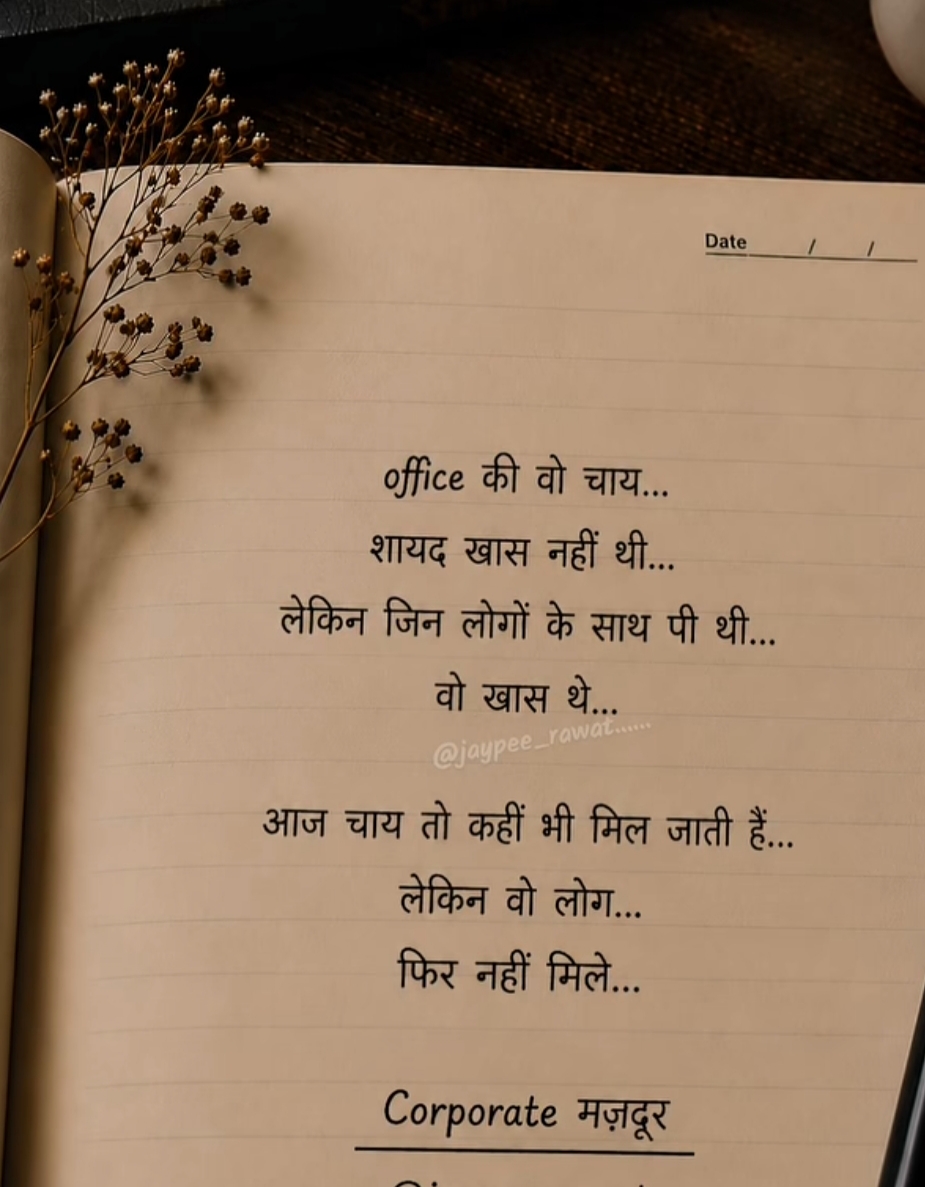 Date / /
office की वो चाय...
शायद खास नहीं थी...
लेकिन जिन लोगों के साथ पी थी...
वो खास थे...
@jaypee_rawat......
आज चाय तो कहीं भी मिल जाती हैं...
लेकिन वो लोग...
फिर नहीं मिले...
Corporate मज़दूर